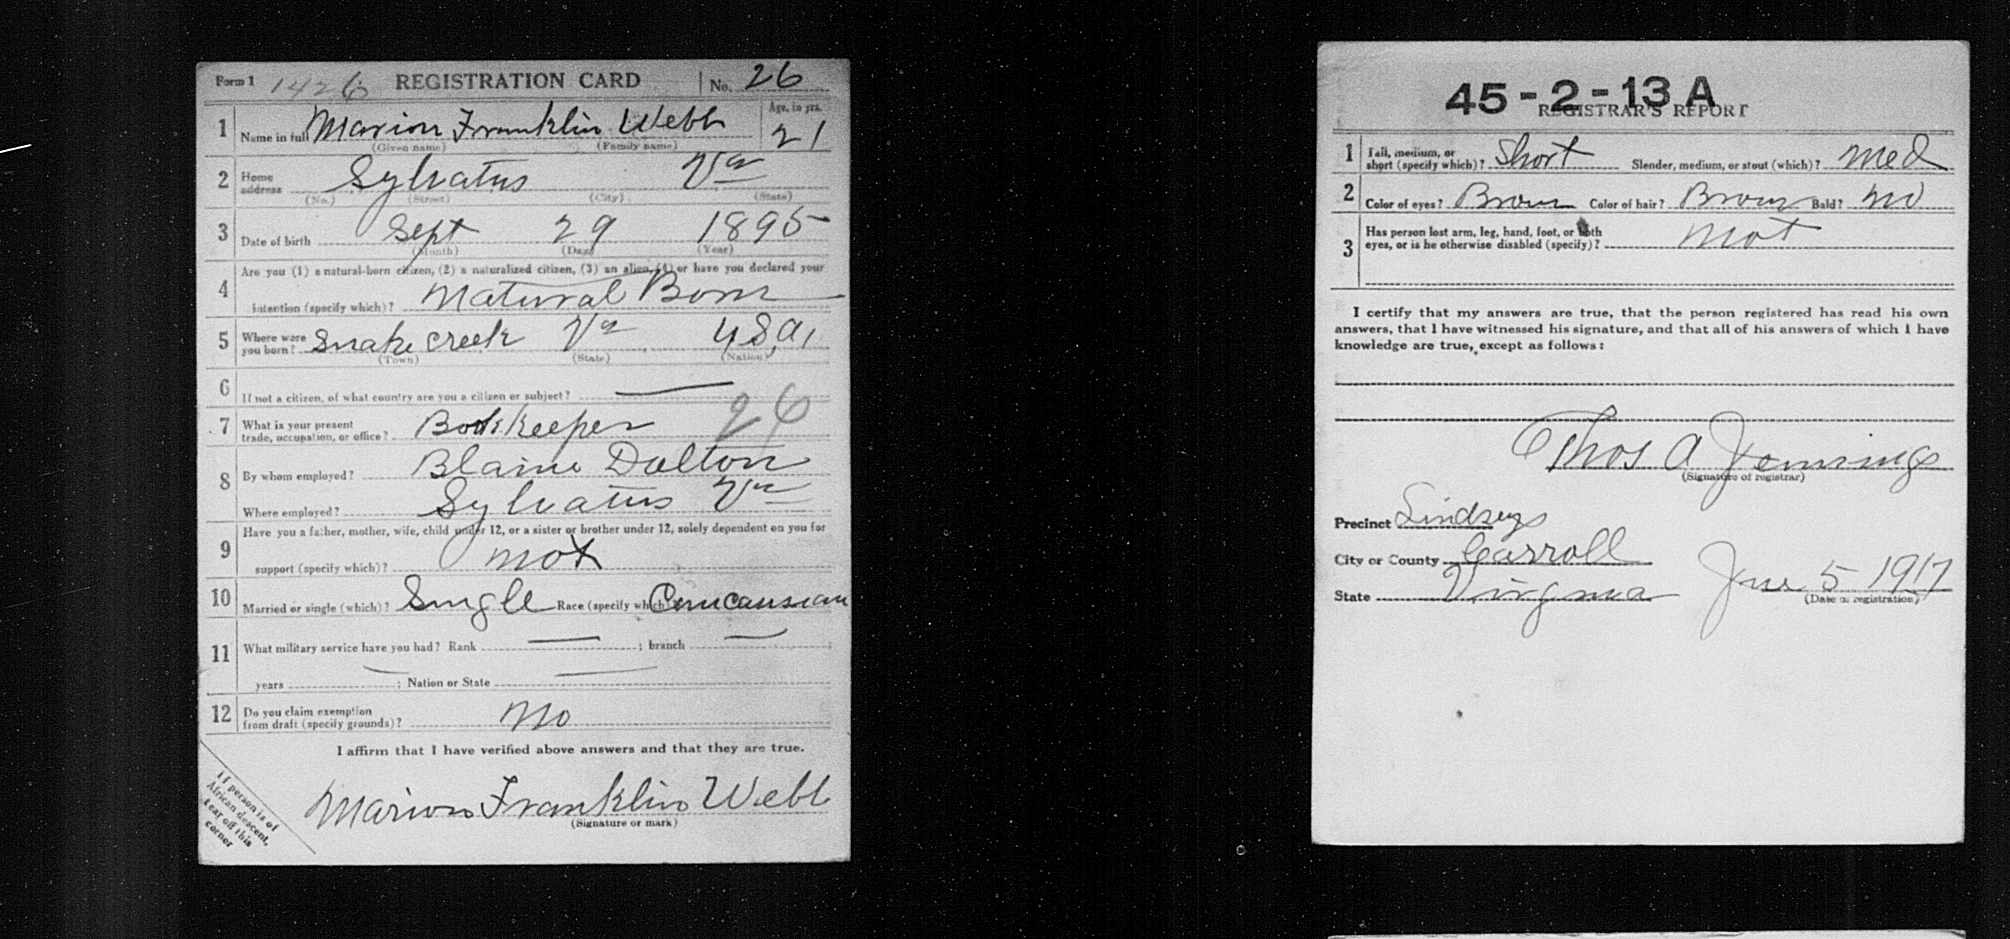 Form 1 1426 REGISTRATION CARD No. 26
1 Name in full Marion Franklin Webb Age, in yrs. 21
(Given name) (Family name)
2 Home address Sylvatus Va
(No.) (Street) (City) (State)
3 Date of birth Sept 29 1895
(Month) (Day) (Year)
4 Are you (1) a natural-born citizen, (2) a naturalized citizen, (3) an alien, (4) or have you declared your
intention (specify which)? Natural Born
5 Where were you born? Snake creek Va U.S.A.
(Town) (State) (Nation)
6 If not a citizen, of what country are you a citizen or subject? —
7 What is your present trade, occupation, or office? Book Keeper 26
8 By whom employed? Blaine Dalton
Where employed? Sylvatus Va
9 Have you a father, mother, wife, child under 12, or a sister or brother under 12, solely dependent on you for
support (specify which)? Not
10 Married or single (which)? Single Race (specify which)? Caucausian
11 What military service have you had? Rank — ; branch — ;
years — ; Nation or State —
12 Do you claim exemption from draft (specify grounds)? No
I affirm that I have verified above answers and that they are true.
Marion Franklin Webb
(Signature or mark)
If person is of
African descent,
tear off this
corner
45-2-13 A
REGISTRAR'S REPORT
1 Tall, medium, or short (specify which)? Short Slender, medium, or stout (which)? Med
2 Color of eyes? Brown Color of hair? Brown Bald? No
3 Has person lost arm, leg, hand, foot, or both
eyes, or is he otherwise disabled (specify)? Not
I certify that my answers are true, that the person registered has read his own
answers, that I have witnessed his signature, and that all of his answers of which I have
knowledge are true, except as follows:
Thos A Jennings
(Signature of registrar)
Precinct Lindseys
City or County Carroll
State Virginia June 5 1917
(Date of registration)